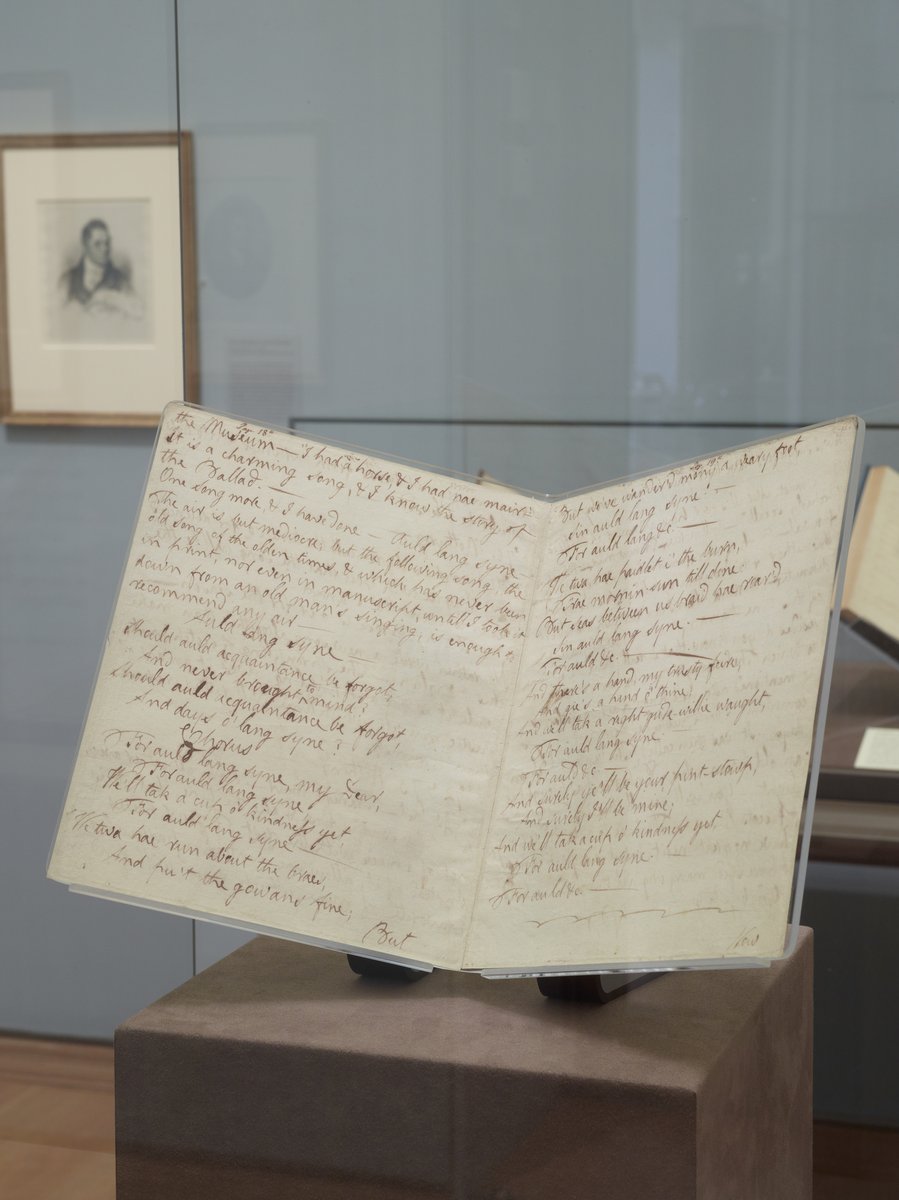 the Museum — "I had a horse, & I had nae mair."
It is a charming song, & I know the story of
the Ballad. —
One song more, & I have done — Auld lang syne
The air is but mediocre; but the following song, the
old song of the olden times, & which has never been
in print, nor even in manuscript, untill I took it
down from an old man's singing, is enough to
recommend any air —
Auld lang syne —
Should auld acquaintance be forgot,
And never brought to mind?
Should auld acquaintance be forgot,
And days o' lang syne?
Chorus
For auld lang syne, my Dear,
For auld lang syne,
We'll take a cup o' kindness yet
For auld lang syne —
We twa hae run about the braes,
And pu't the gowans fine;
But
But we've wander'd mony a weary foot,
Sin auld lang syne. —
For auld lang &c. —
We twa hae paidlet i' the burn,
Frae mornin sun till dine:
But seas between us braid hae roar'd,
Sin auld lang syne. —
For auld &c. —
And there's a hand, my trusty fiere,
And gie's a hand o' thine;
And we'll take a right gude-willie waught,
For auld lang syne —
For auld &c —
And surely ye'll be your pint stowp,
And surely I'll be mine;
And we'll take a cup o' kindness yet
For auld lang syne. —
For auld &c. —